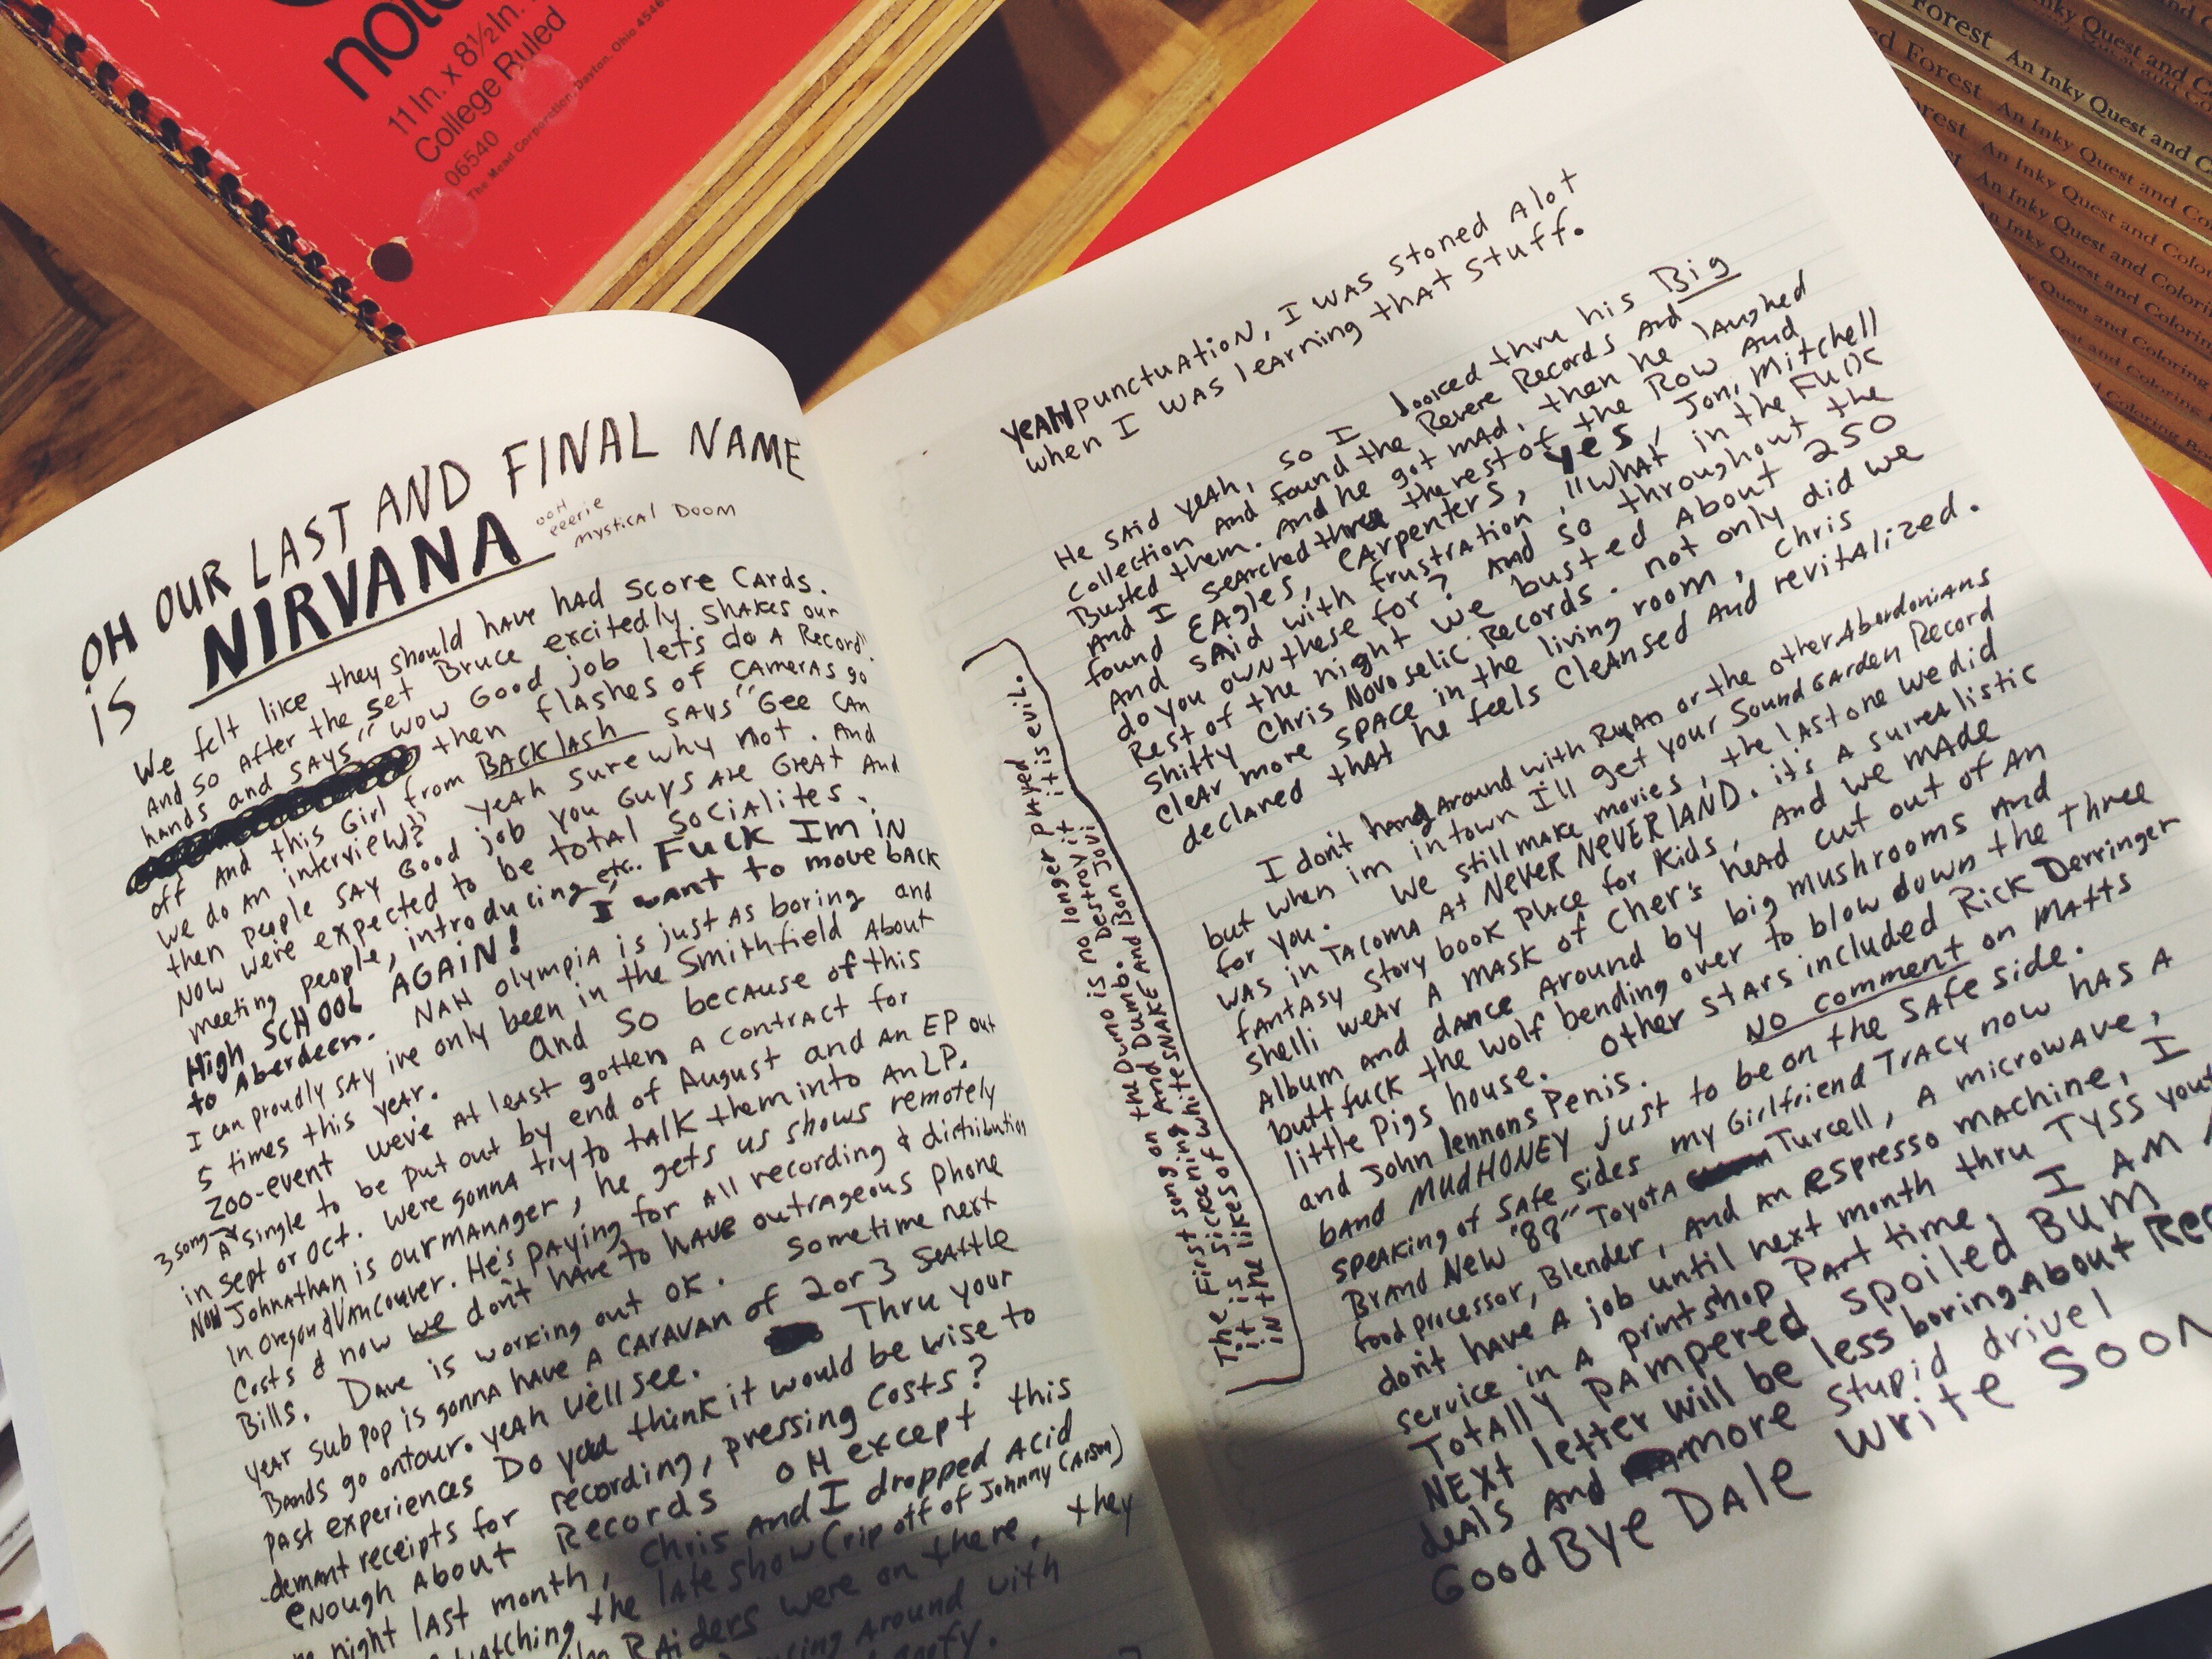 note
11 In. x 8½ In.
College Ruled
06540
The Mead Corporation, Dayton, Ohio 4546
OH OUR LAST AND FINAL NAME
IS NIRVANA
ooH
eeerie
mystical Doom
We felt like they should have had Score Cards.
And so After the set Bruce excitedly shakes our
hands and says "wow Good job lets do A Record"
then flashes of Cameras go
off And this Girl from BACKlash says "Gee CAn
we do An interview?" yeah sure why not. And
then people say Good job you Guys Are Great And
Now were expected to be total socialites.
meeting people, introducing etc. Fuck I'm in
High SCHOOL AGAiN! I want to move back
to Aberdeen. NAH olympia is just as boring and
I can proudly say ive only been in the Smithfield About
5 times this year. And so because of this
Zoo-event we've at least gotten a contract for
3 song
A single to be put out by end of August and An EP out
in sept or oct. Were gonna try to talk them into An LP.
Now Johnathan is our manager, he gets us shows remotely
in Oregon & Vancouver. He's paying for all recording & distribution
Costs & now we dont have to have outrageous phone
Bills. Dave is working out ok. Sometime next
year sub pop is gonna have a caravan of 2 or 3 Seattle
Bands go on tour. yeah we'll see. Thru your
past experiences Do you think it would be wise to
demant receipts for recording, pressing Costs?
enough about Records oH except this
night last month, Chris and I dropped Acid
watching the late show (rip off of Johnny Carson)
Raiders were on there, they
around with
yeAH punctuation, I was stoned Alot
when I was learning that stuff.
He said yeah, so I looked thru his Big
collection and found the Revere Records And
Busted them. And he got mad, then he laughed
And I searched the rest of the Row And
found EAgles, CArpenters, yes, Joni Mitchell
And said with frustration, "What in the Fuck
do you own these for? And so throughout the
Rest of the night we busted About 250
shitty Chris Novoselic Records. not only did we
clear more space in the living room, Chris
declared that he feels cleansed And revitalized.
I don't hang Around with Ryan or the other Aberdonians
but when im in town I'll get your Soundgarden Record
for you. We still make movies, the last one we did
was in Tacoma At NEVER NEVERLAND. it's A surrealistic
fantasy story book place for kids, And we made
shelli wear A mask of Cher's head cut out of An
Album and dance Around by big mushrooms And
butt fuck the wolf bending over to blow down the three
little Pigs house. other stars included Rick Derringer
and John lennons Penis. No comment on Matts
band MUDHONEY just to be on the safe side.
speaking of safe sides my Girlfriend Tracy now has A
Brand New "88" Toyota Turcell, A microwave,
food processor, Blender, And an espresso machine, I
don't have A job until next month thru TYSS youth
service in A printshop Part time, I AM A
Totally pampered spoiled Bum
NEXT letter will be less boring About Rec
deals And more stupid drivel
GoodBye Dale write Soon
The First song on the Dumo is no longer played
it is sickening And Dumb. Destroy it it is evil.
in the likes of whitesNAKE And Bon Jovi
Forest An Inky Quest and Co
ed Forest An Inky Quest and C
orest An Inky Quest and Co
An Inky Quest and Color
An Inky Quest and Colorin